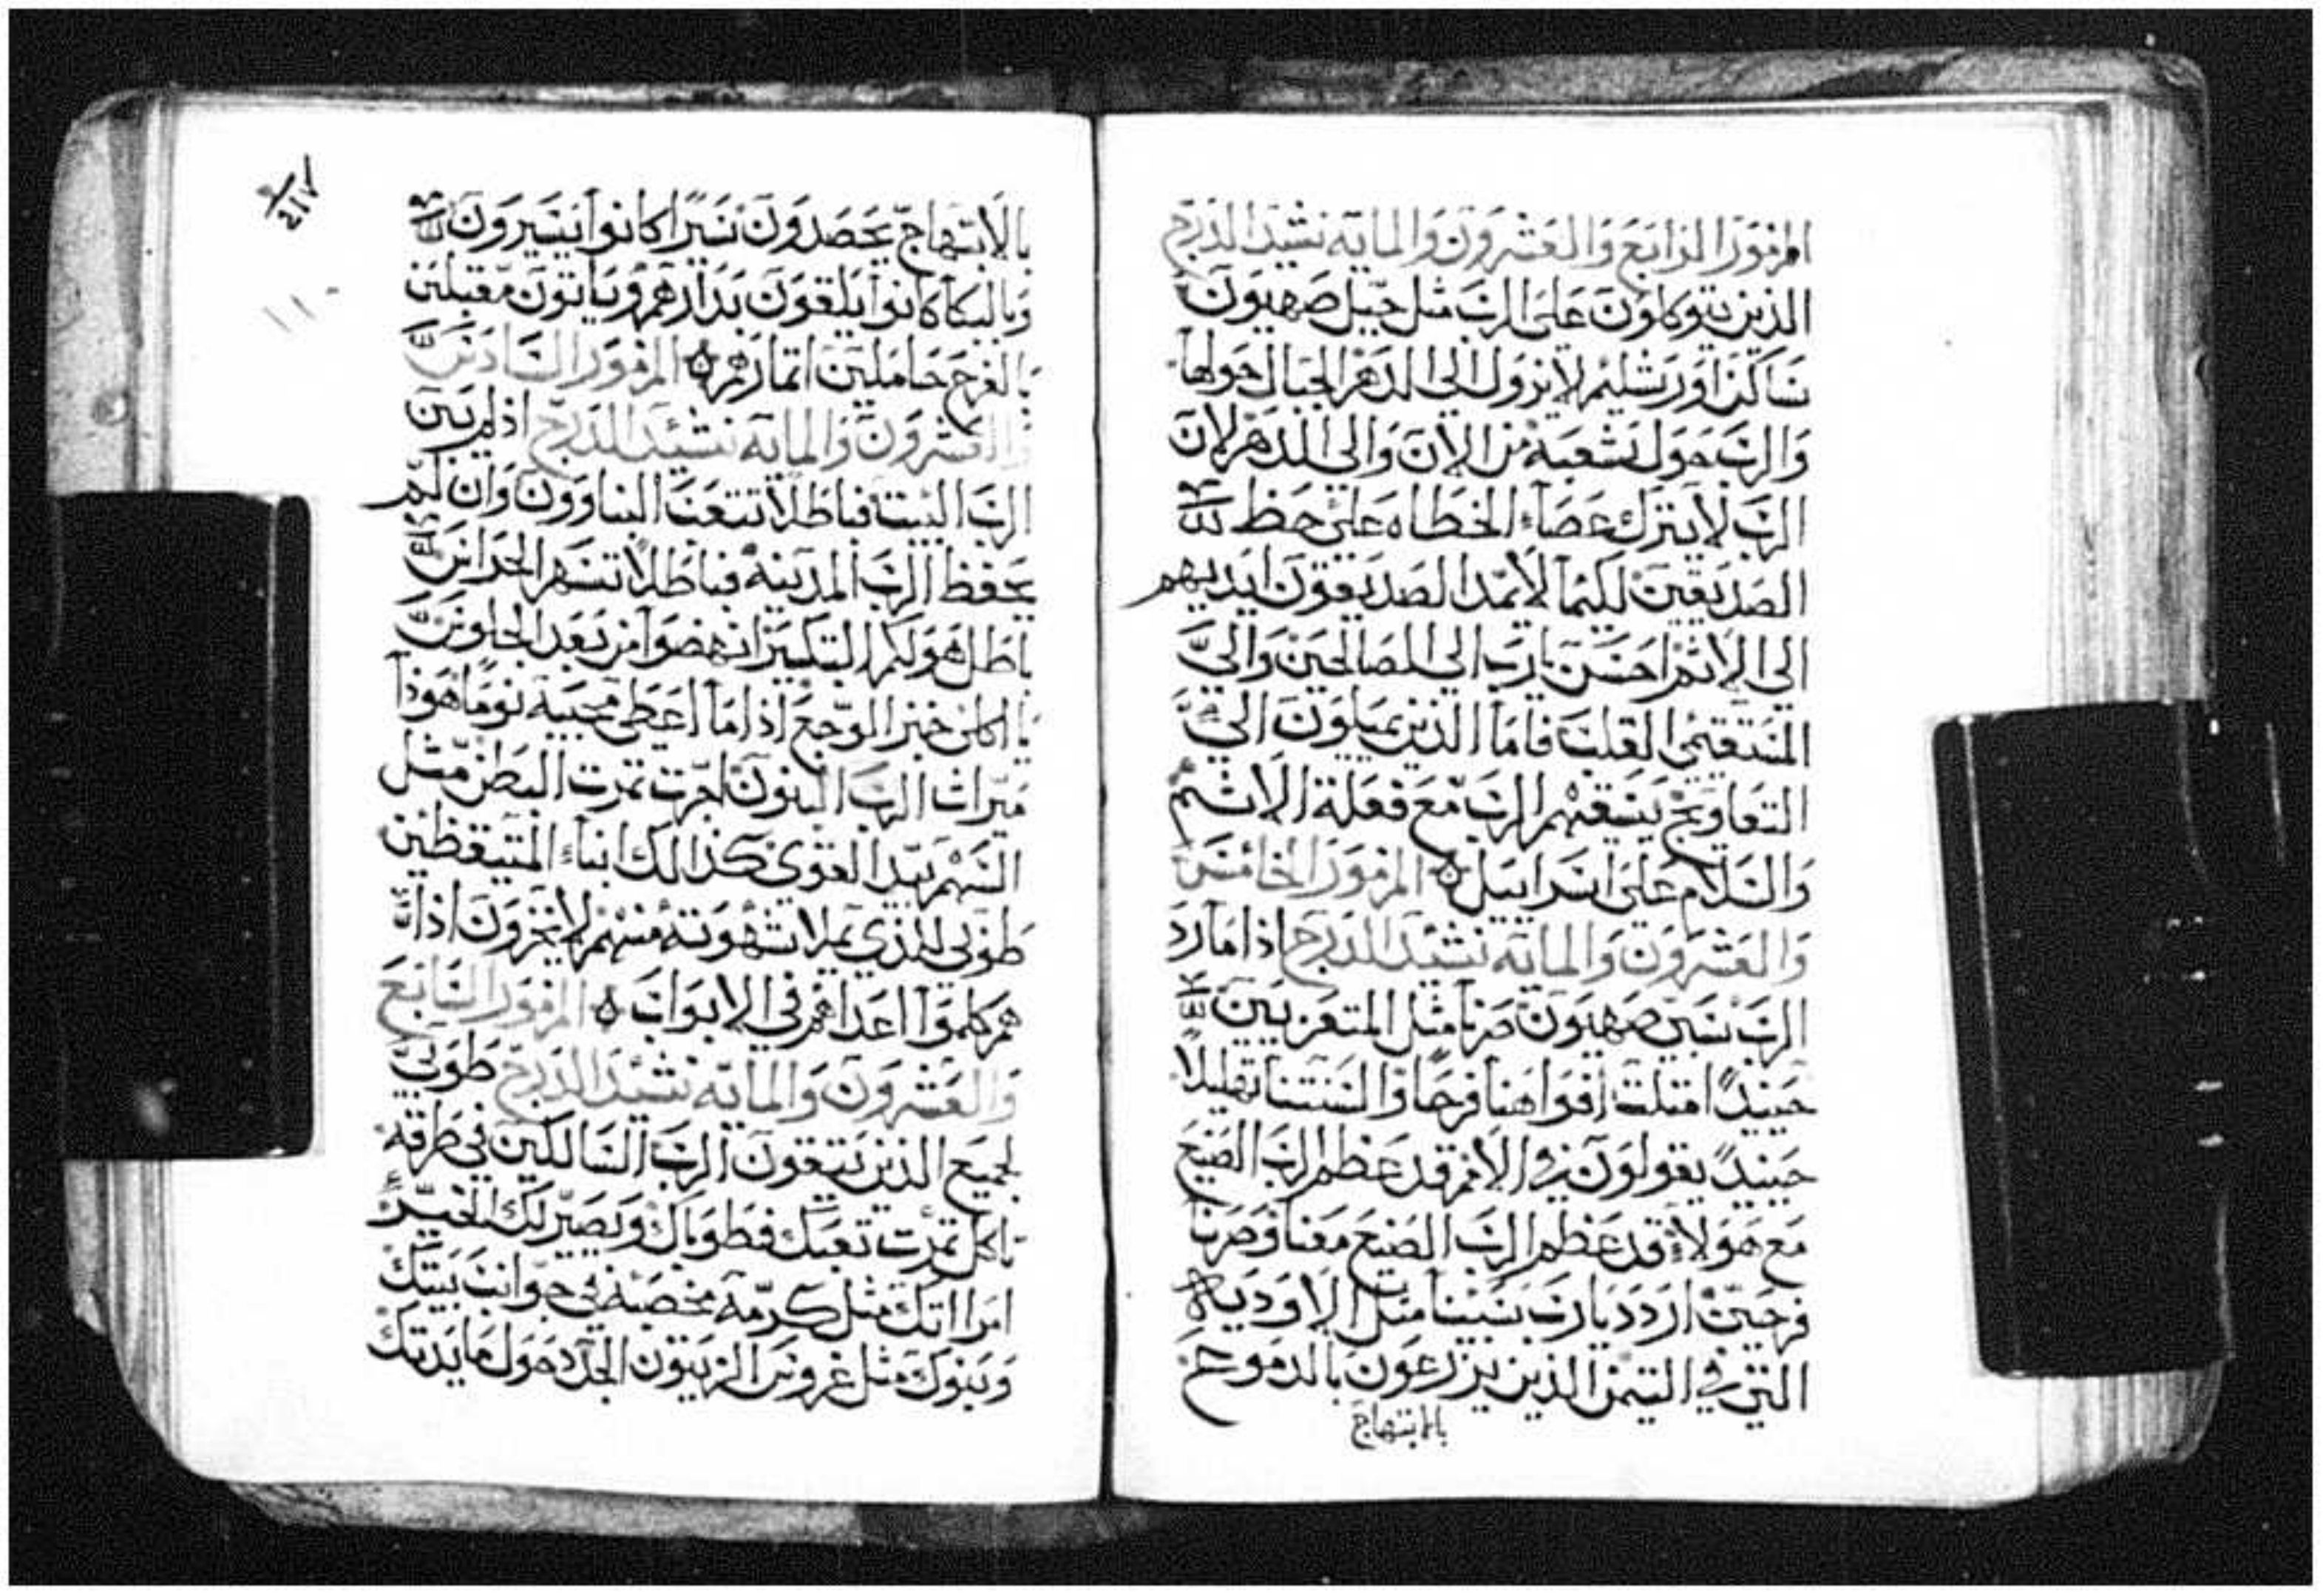 المزمور الرابع والعشرون والمايه نشيد الدرج
الذين يتوكلون على الرب مثل جبل صهيون
ساكن اورشليم لا يزول الى الدهر الجبال حولها
والرب حول شعبه من الان والى الدهر لان
الرب لا يترك عصاء الخطاه على حظ
الصديقين لكيما لا يمد الصديقون ايديهم
الى الاثم احسن يارب الى الصالحين والى
المستقيمى القلب فاما الذين يميلون الى
التعاويج يسقهم الرب مع فعلة الاثم
والسلام على اسراييل ه المزمور الخامس
والعشرون والمايه نشيد الدرج اذا ما رد
الرب سبي صهيون صرنا مثل المتعزيين
حينيدً امتلت افواهنا فرحًا والسنتنا تهليلاً
حينيدً يقولون في الامم قد عظم الرب الصنيع
مع هولاء قد عظم الرب الصنيع معنا وصرنا
فرحين اردد يارب سبينا مثل الاوديه
التي في التيمن الذين يزرعون بالدموع
بالابتهاج
٢١٧
بالابتهاج يحصدون سيرًا كانوا يسيرون
وبالبكا كانوا يلقون بدارهم وياتون مقبلين
بالفرح حاملين اتمارهم ه المزمور السادس
والعشرون والمايه نشيد الدرج اذ لم يبن
الرب البيت فباطلاً تتعب البناوون وان لم
يحفظ الرب المدينه فباطلاً تسهر الحراس
باطل هو لكم التبكير انهضوا من بعد الجلوس
يا اكلى خبز الوجع اذا ما اعطى محبيه نومًا هوذا
ميراث الرب البنون اجرت تمرت البطن مثل
السهم بيد القوي كذالك ابناء المتيقظين
طوبى للذي يملا شهوته منهم لا يخزون اذا
هم كلموا اعداهم في الابواب ه المزمور السابع
والعشرون والمايه نشيد الدرج طوبى
لجميع الذين يتقون الرب السالكين في طرقه
تاكل تمرت تعبك فطوباك ويصير لك الخير
امراتك مثل كرمه مخصبه في جوانب بيتك
وبنوك مثل غروس الزيتون الجدد حول مايدتك